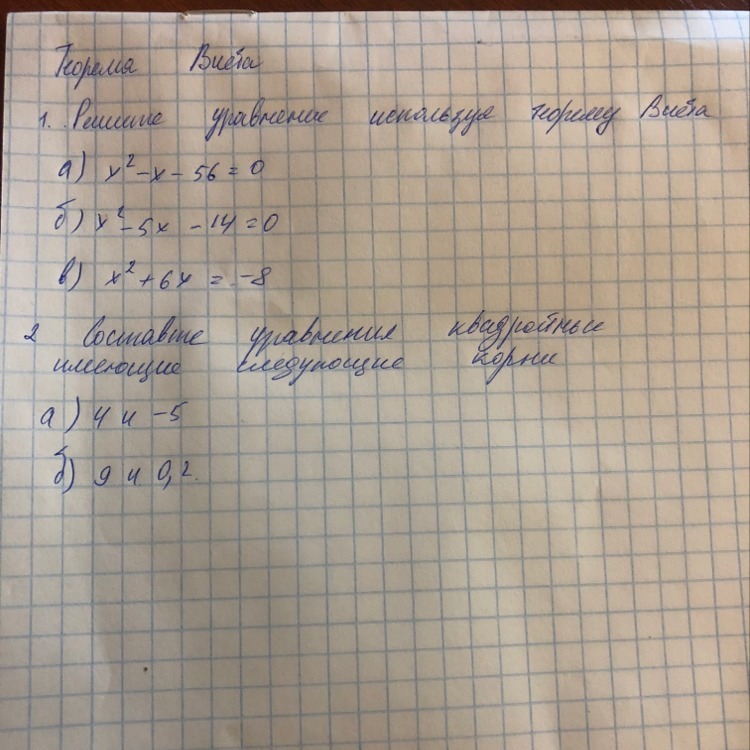 Теорема Виета
1. Решите уравнение используя теорему Виета
а) x² - x - 56 = 0
б) x² - 5x - 14 = 0
в) x² + 6x = -8
2 Составте уравнения квадратные
имеющие следующие корни
а) 4 и -5
б) 9 и 0,2.